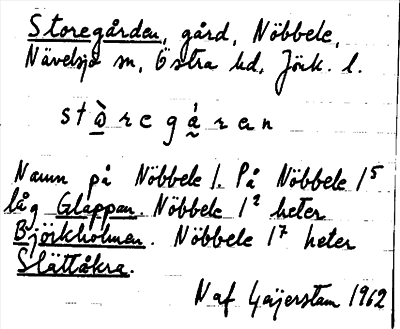 Storegården, gård, Nöbbele,
Nävelsjö sn, Östra hd, Jönk. l.
stò̱re gá̰ran
Namn på Nöbbele 1. På Nöbbele 1⁵
låg Glappan. Nöbbele 1² heter
Björkholmen. Nöbbele 1⁷ heter
Slättåkra.
N af Geijerstam 1962